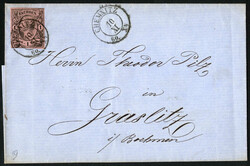 CHEMNITZ
10
II
Herrn Theodor Pelz
in
Graslitz
i/ Boehmen